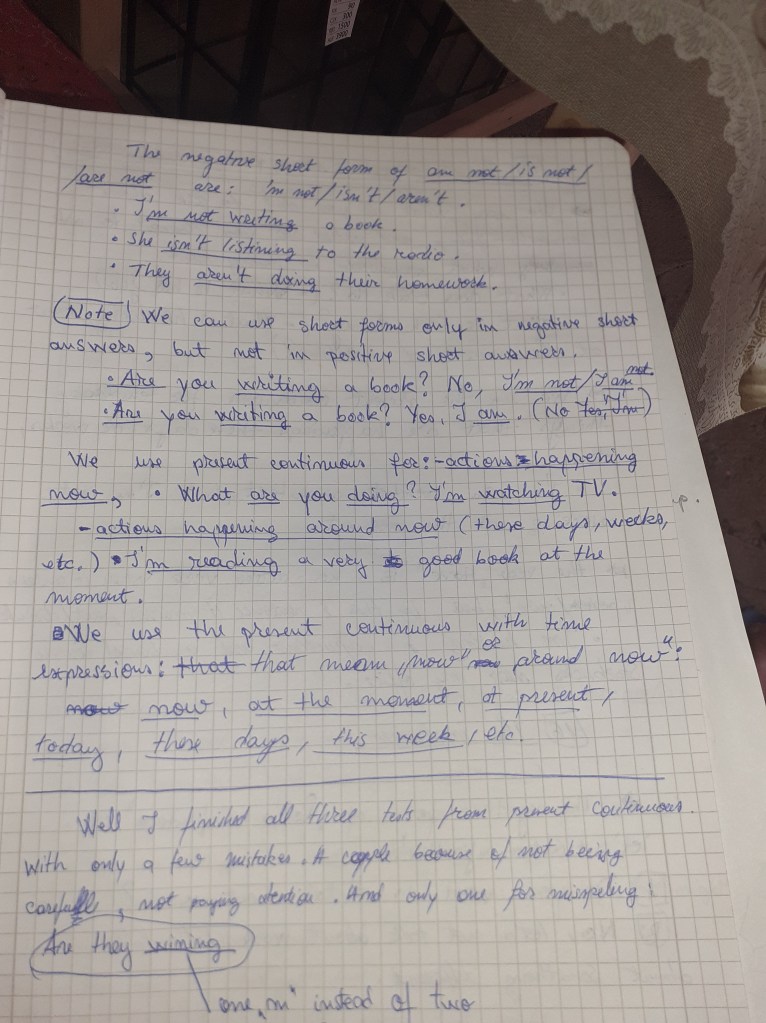 The negative short form of am not/is not/
/are not are: 'm not/isn't/aren't.
• I'm not writing a book.
• She isn't listening to the radio.
• They aren't doing their homework.
Note We can use short forms only in negative short
answers, but not in positive short answers.
• Are you writing a book? No, I'm not/I am not.
• Are you writing a book? Yes, I am. (No Yes, "I'm")
We use present continuous for: - actions happening
now, • What are you doing? I'm watching TV.
- actions happening around now (these days, weeks,
etc.) • I'm reading a very good book at the
moment.
We use the present continuous with time
expressions: that that mean „now" or around now":
now now, at the moment, at present,
today, these days, this week, etc.
Well I finished all three tests from present continuous.
With only a few mistakes. A copple because of not being
carefull, not paying atention. And only one for misspeling:
Are they wining
one „n" instead of two